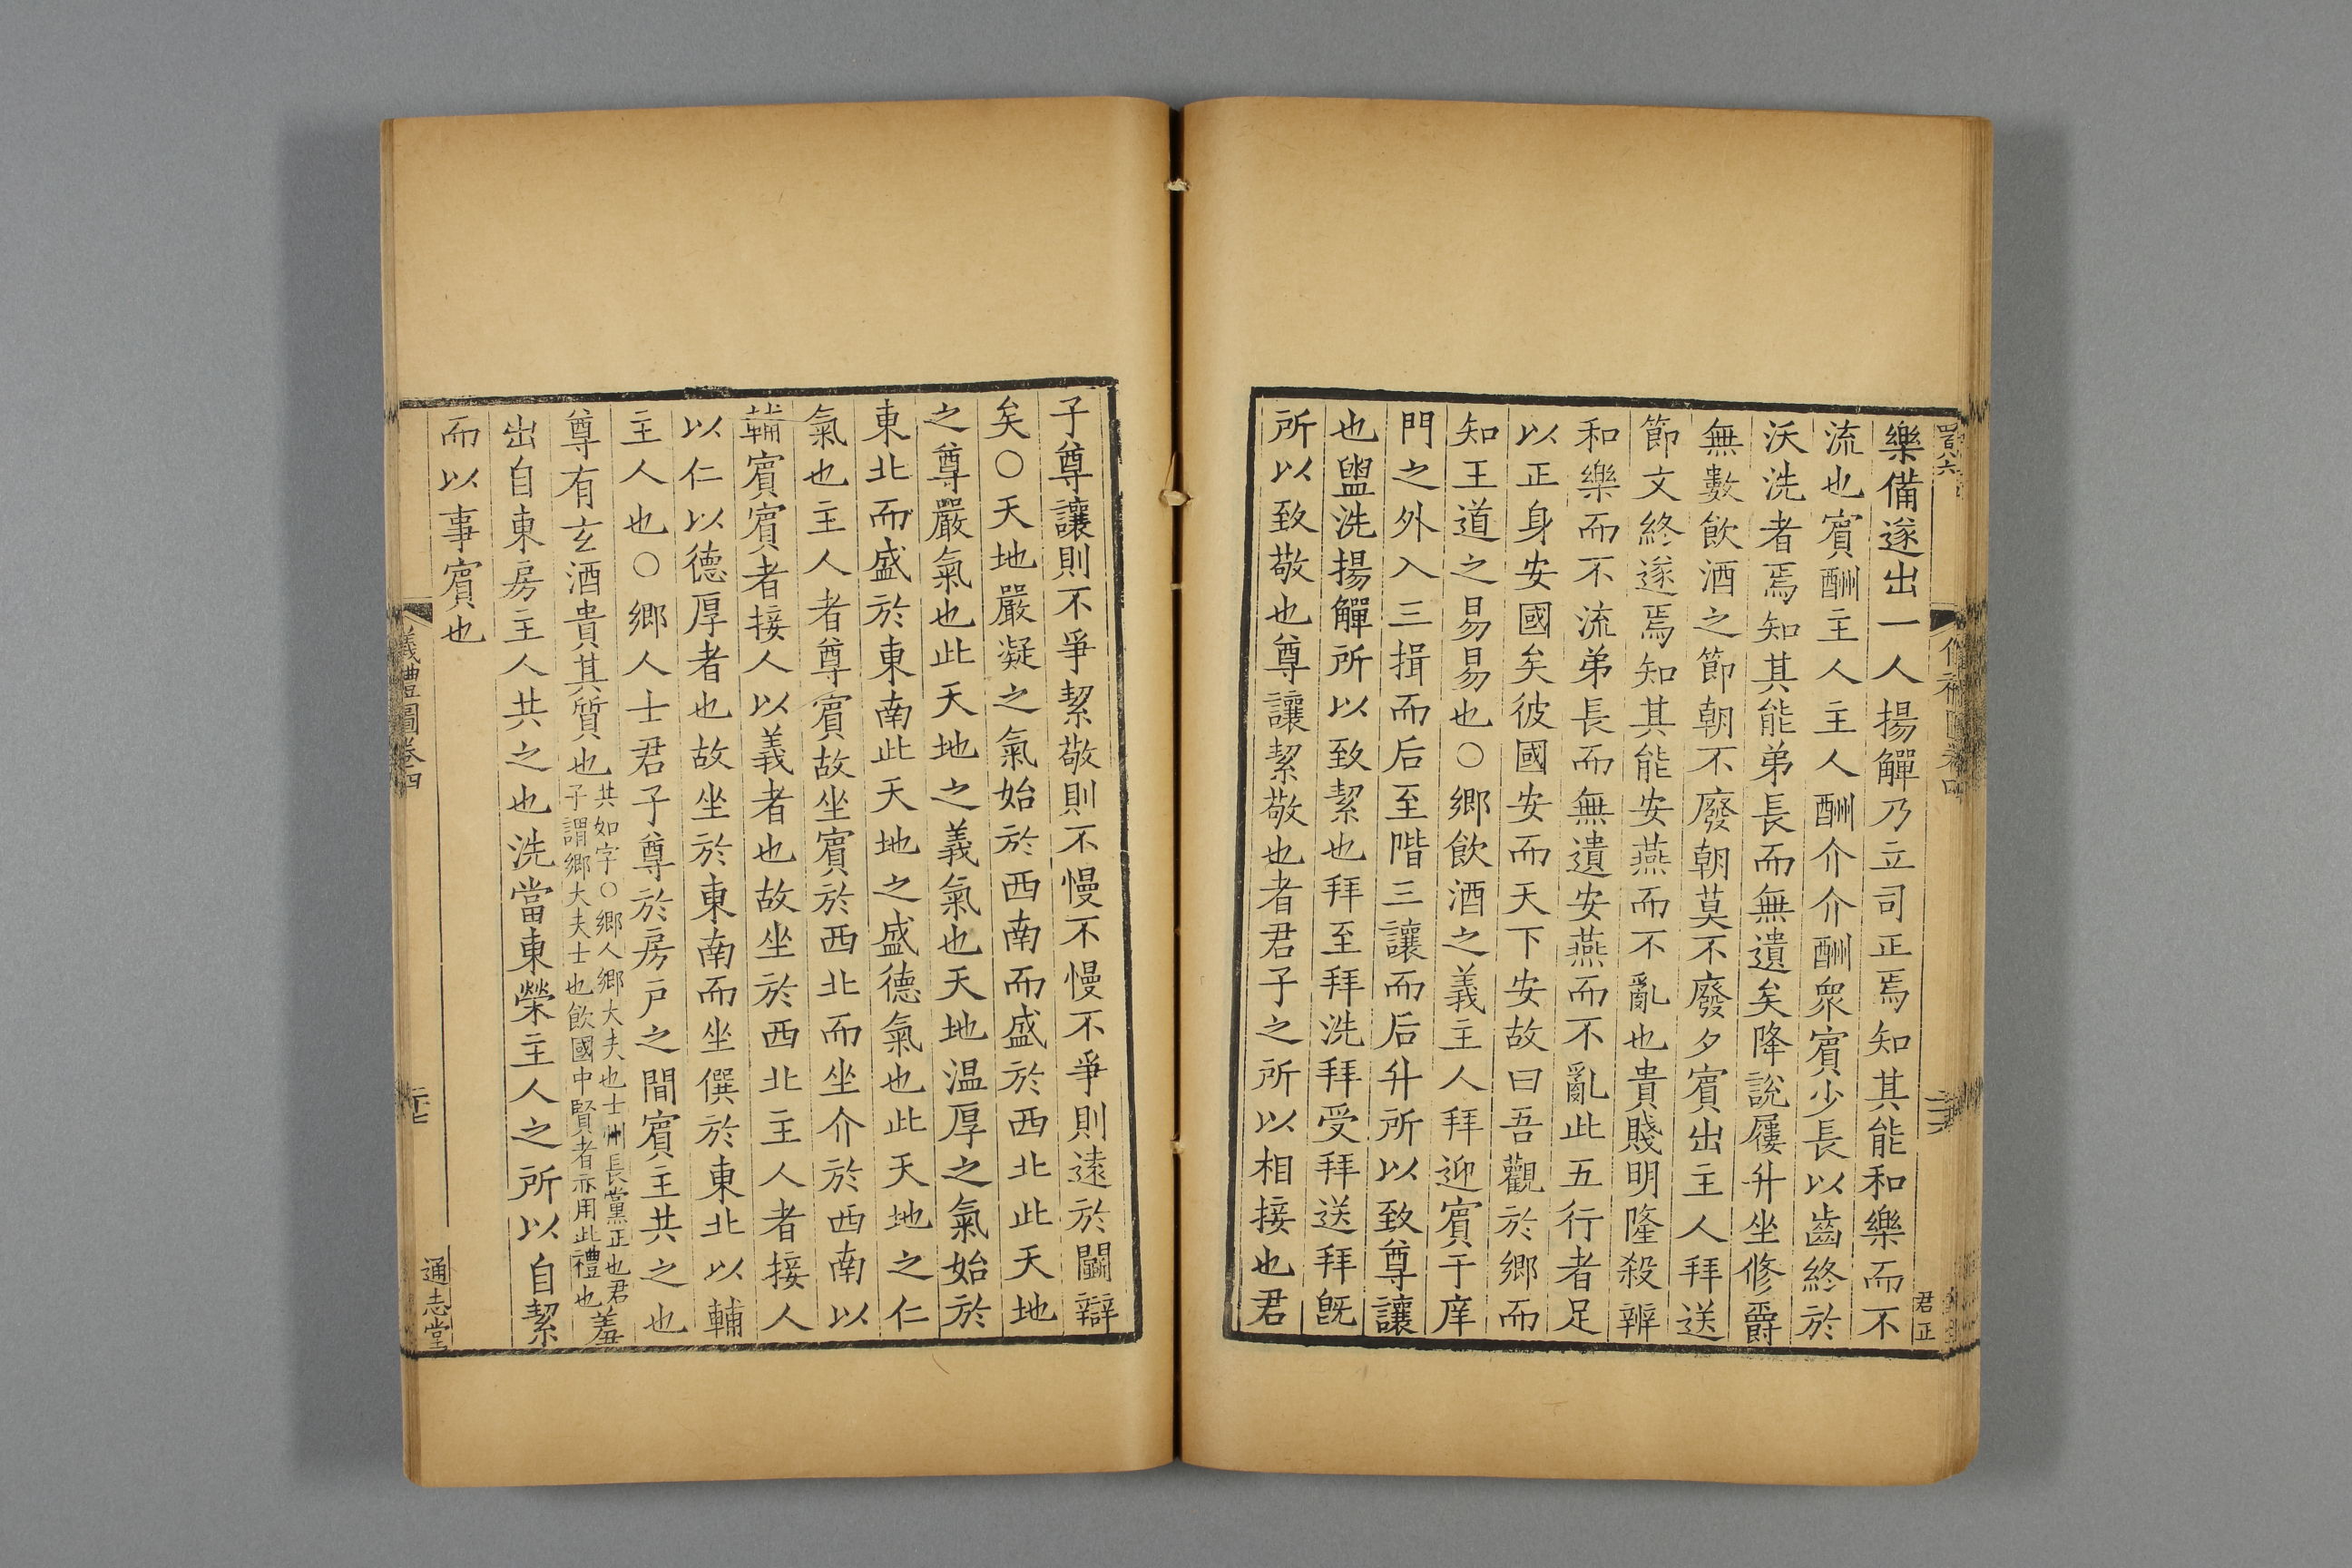 樂備遂出一人揚觶乃立司正焉知其能和樂而不
流也賔酬主人主人酬介介酬衆賔少長以齒終於
沃洗者焉知其能弟長而無遺矣降說屨升坐修爵
無數飲酒之節朝不廢朝莫不廢夕賔出主人拜送
節文終遂焉知其能安燕而不亂也貴賤明隆殺辨
和樂而不流弟長而無遺安燕而不亂此五行者足
以正身安國矣彼國安而天下安故曰吾觀於鄉而
知王道之易易也○鄉飲酒之義主人拜迎賔于庠
門之外入三揖而后至階三讓而后升所以致尊讓
也盥洗揚觶所以致絜也拜至拜洗拜受拜送拜旣
所以致敬也尊讓絜敬也者君子之所以相接也君
君正
子尊讓則不爭絜敬則不慢不慢不爭則遠於鬭辯
矣○天地嚴凝之氣始於西南而盛於西北此天地
之尊嚴氣也此天地之義氣也天地温厚之氣始於
東北而盛於東南此天地之盛德氣也此天地之仁
氣也主人者尊賔故坐賔於西北而坐介於西南以
輔賔賔者接人以義者也故坐於西北主人者接人
以仁以德厚者也故坐於東南而坐僎於東北以輔
主人也○鄉人士君子尊於房戸之間賔主共之也
尊有玄酒貴其質也共如字○鄉人鄉大夫也士州長黨正也君
子謂鄉大夫士也飲國中賢者亦用此禮也羞
出自東房主人共之也洗當東榮主人之所以自絜
而以事賔也
儀禮圖卷四
通志堂